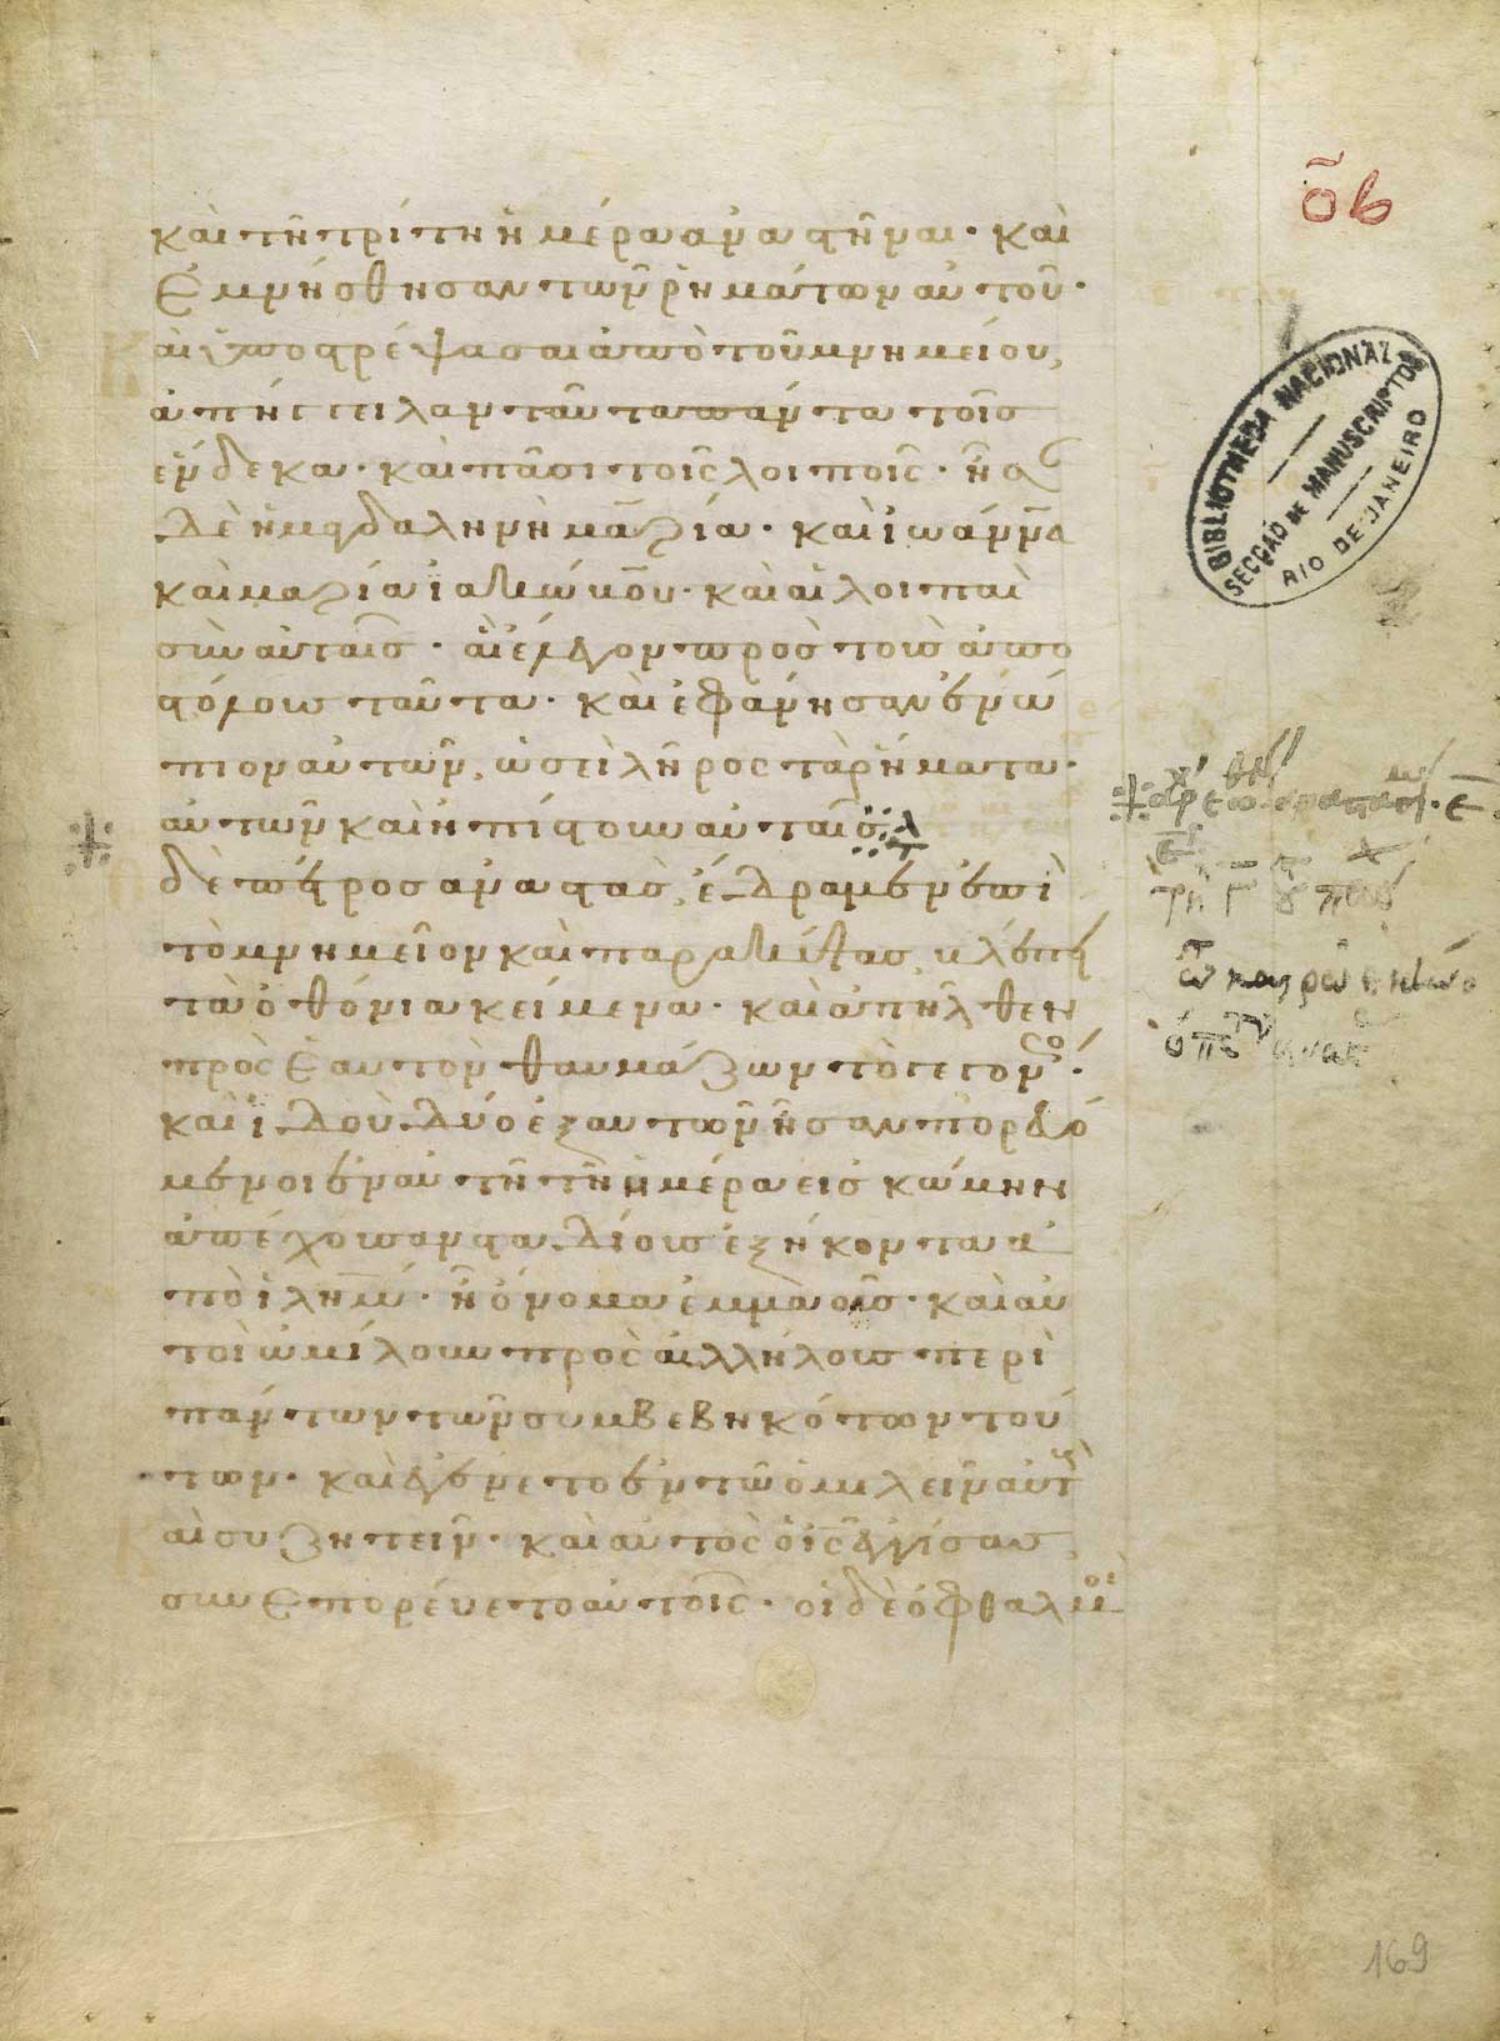 οβ
καὶ τῆ τρίτη ἡμέρα ἀναστῆναι· καὶ
ἐμνήσθησαν τῶν ῥημάτων αὐτοῦ·
αὶ ὑποστρέψασαι ἀπὸ τοῦ μνημείου,
ἀπήγγειλαν ταῦτα πάντα τοῖσ
ἕνδεκα· καὶ πᾶσι τοῖς λοιποῖς· ἦσ
δὲ ἡ μαγδαληνὴ μαρία· καὶ ἰωάννα
καὶ μαρία ἰακώβου· καὶ αἱ λοιπαὶ
σὺν αὐταῖσ· αἳ ἔλεγον πρὸσ τοὺσ ἀπο
στόλουσ ταῦτα· καὶ ἐφάνησαν ἐνώ
πιον αὐτῶν, ὡσεὶ λῆρος τὰ ῥήματα
αὐτῶν καὶ ἠπίστουν αὐταῖσ
δὲ πέτροσ ἀναστὰσ, ἔδραμεν ἐπὶ
τὸ μνημεῖον καὶ παρακύψας, βλέπει
τὰ ὀθόνια κείμενα· καὶ ἀπῆλθεν
πρὸς ἑαυτὸν θαυμάζων τὸ γεγονόσ·
καὶ ἰδοὺ δύο ἐξ αὐτῶν ἦσαν πορευό
μενοι ἐν αὐτῆ τῆ ἡμέρα εἰσ κώμην
ἀπέχουσαν σταδίουσ ἑξήκοντα ἀ
πὸ ἰλημ· ἧ ὄνομα ἐμμαοῦσ· καὶ αὐ
τοὶ ὡμίλουν πρὸς ἀλλήλουσ περὶ
πάντων τῶν συμβεβηκότων τού
των· καὶ ἐγένετο ἐν τῶ ὁμιλεῖν αὐτ
αὶ συζητεῖν· καὶ αὐτὸς ὁ ἰς ἐγγίσασ
συνεπορεύετο αὐτοῖς· οἱ δὲ ὀφθαλμοὶ
BIBLIOTHECA NACIONAL
SECÇÃO DE MANUSCRIPTOS
RIO DE JANEIRO
169